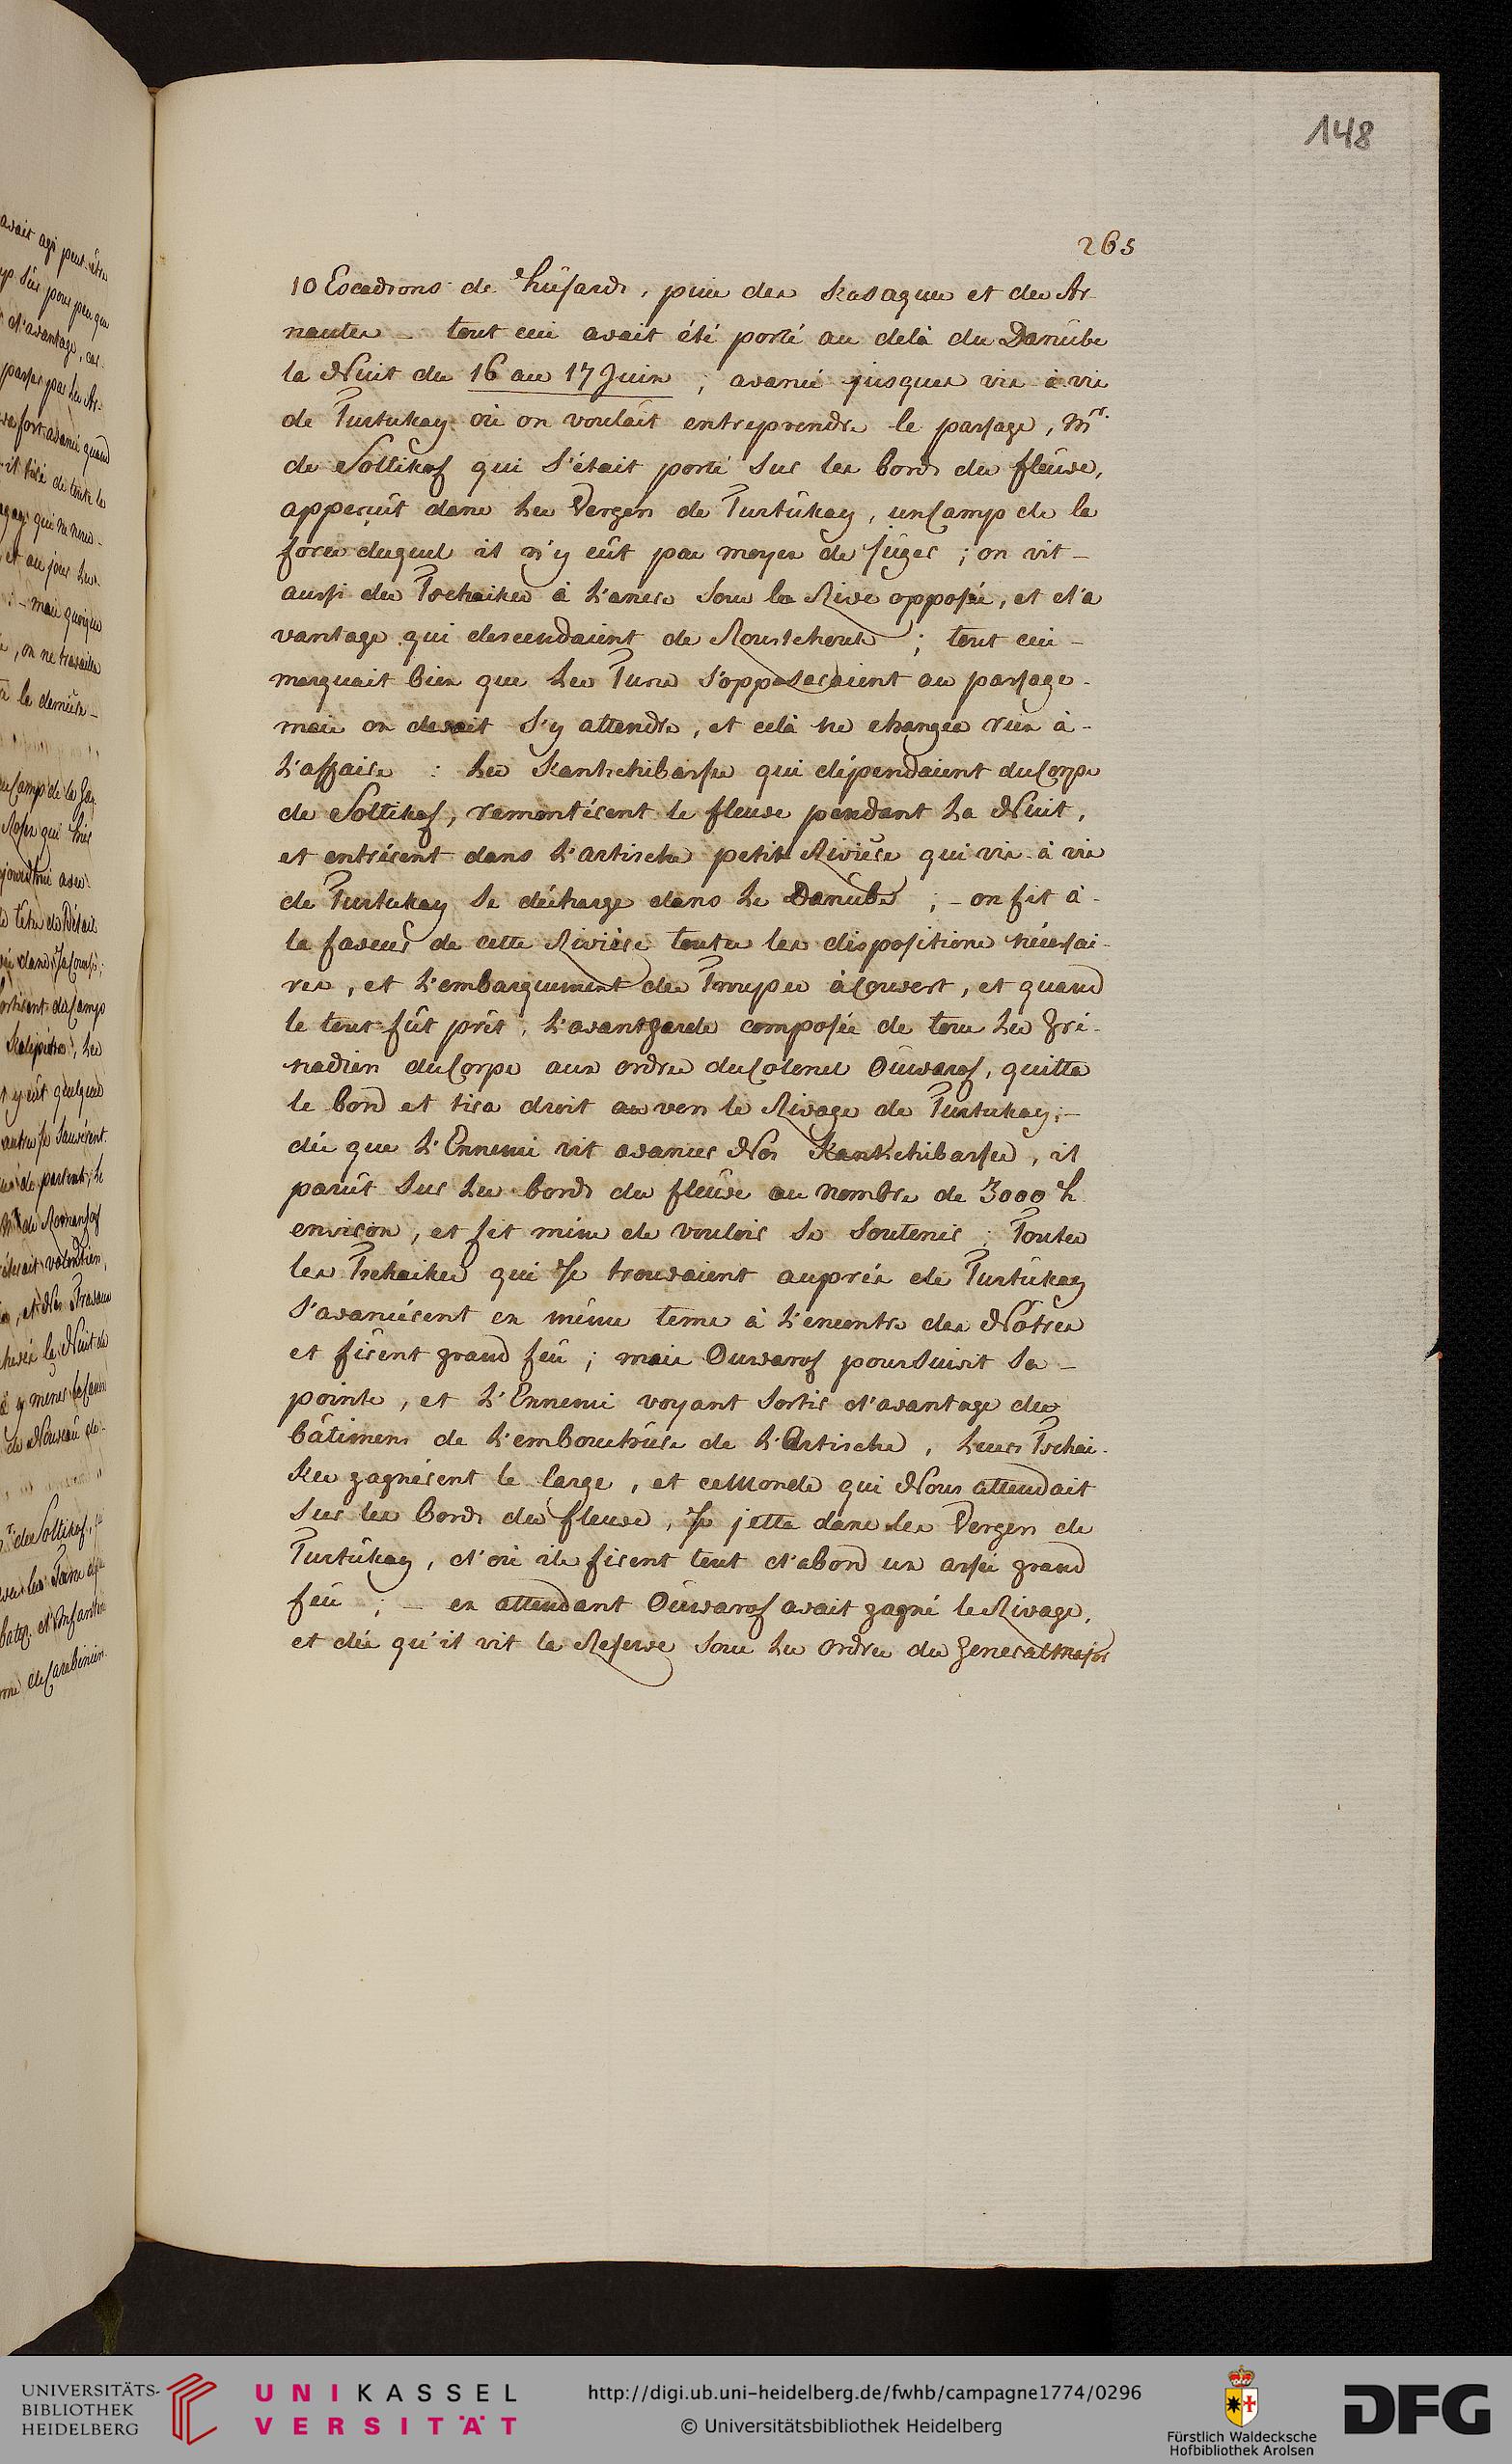 148
265
10 Escadrons de hûsards, puis des Kosaques et des Ar-
nautes – tout ceci avait été porté au delà du Danûbe
la Nuit du 16 au 17 Juin ; avancé jusques vis à vis
de Turtukay où on voulait entreprendre le passage, Mr.
de Soltikof qui s'était porté sur les bords du fleûve,
apperçût dans les Vergers de Turtûkay, un Camp de la
force duquel il n'y eût pas moyen de jûger ; on vit –
aussi des Tschaikes à l'ancre sous la Rive opposée, et d'a
vantage qui descendaient de Roustchouk ; tout ceci –
marquait bien que les Turcs s'opposeraient au passage.
mais on devait s'y attendre, et celà ne changea rien à –
l'affaire : les Kantschibasses qui dépendaient du Corps
de Soltikof, remontérent le fleuve pendant la Nuit,
et entrérent dans l'Artische petite Riviére qui vis à vis
de Turtukay se décharge dans le Danûbe ; – on fit à –
la faveur de cette Riviére toutes les dispositions nécessai-
res, et l'embarquement des Trouppes à Couvert, et quand
le tout fût prêt, l'avantgarde composée de tous les Gré-
nadiers du Corps aux ordres du Colonel Oûwarof, quitta
le bord et tira droit au vers le Rivage de Turtukay ; –
dès que l'Ennemi vit avancer Nos Kantschibasses, il
parût sur les bords du fleûve au nombre de 3000 h.
environ, et fit mine de vouloir se soutenir ; Toutes
les Tschaikes qui se trouvaient auprès de Turtûkay
s'avancérent en même tems à l'encontre des Nôtres
et firent grand feû ; mais Ouwarof poursuivit sa –
pointe, et l'Ennemi voyant sortir d'avantage des
bâtimens de l'emboucheure de l'Artische, leurs Tschai-
kes gagnérent le large, et ce Monde qui Nous attendait
sur les bords du fleuve, se jetta dans les Vergers de
Turtûkay, d'où ils firent tout d'abord un assés grand
feû ; – en attendant Oûwarof avait gagné le Rivage,
et dès qu'il vit la Reserve sous les ordres du Generalmajor
UNIVERSITÄTS-
BIBLIOTHEK
HEIDELBERG
UNIKASSEL
VERSITÄT
http://digi.ub.uni-heidelberg.de/fwhb/campagne1774/0296
© Universitätsbibliothek Heidelberg
Fürstlich Waldecksche
Hofbibliothek Arolsen
DFG